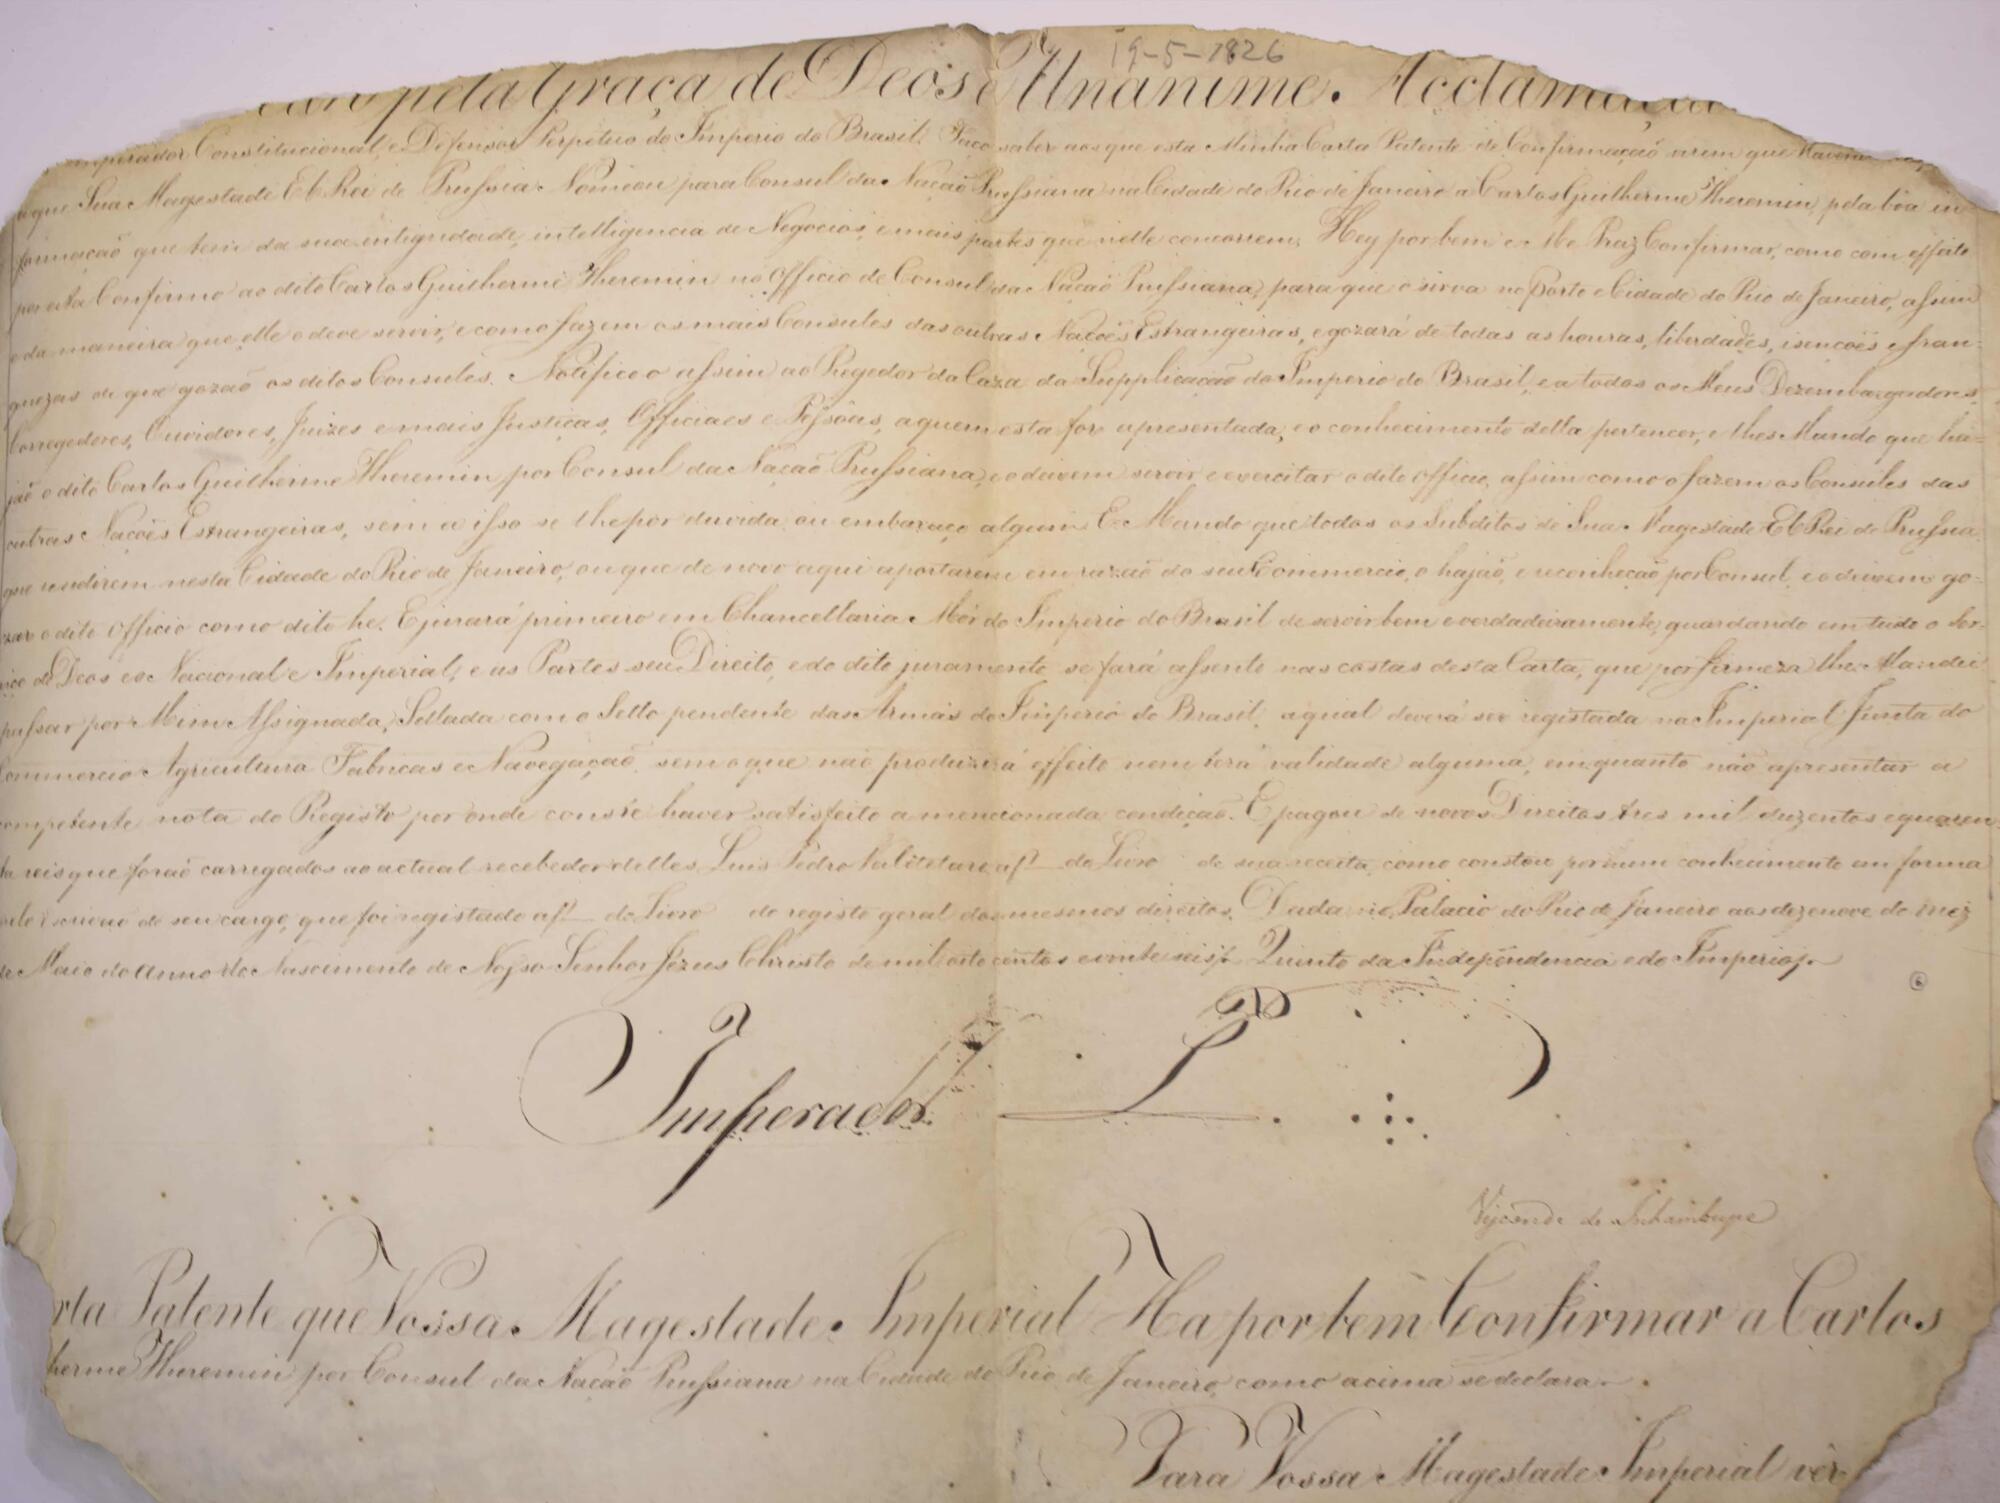 19-5-1826
pela Graça de Deos e Unanime Acclamação
Imperador Constitucional, e Defensor Perpetuo do Imperio do Brasil. Faço saber aos que esta Minha Carta Patente de Confirmação virem que Havendo
que Sua Magestade El Rei de Prussia Nomeou para Consul da Nação Prussiana na Cidade do Rio de Janeiro a Carlos Guilherme Theremin, pela bôa in-
formação que tem da sua integridade, intelligencia de Negocios, e mais partes que nelle concorrem, Hey por bem e Me Praz Confirmar, como com effeito
por esta Confirmo ao dito Carlos Guilherme Theremin no Officio de Consul da Nação Prussiana, para que o sirva no Porto e Cidade do Rio de Janeiro, assim
e da maneira que elle o deve servir, e como fazem os mais Consules das outras Nações Estrangeiras, e gozará de todas as honras, liberdades, isenções e fran-
quezas de que gozão os ditos Consules. Notifico o assim ao Regedor da Caza da Supplicação do Imperio do Brasil, e a todos os Meus Dezembargadores,
Corregedores, Ouvidores, Juizes e mais Justiças, Officiaes e Pessôas, a quem esta for apresentada, e o conhecimento della pertencer, e lhes Mando que ha-
jão o dito Carlos Guilherme Theremin por Consul da Nação Prussiana, e o deixem servir e exercitar o dito officio, assim como o fazem os Consules das
outras Nações Estrangeiras, sem a isso se lhe por duvida ou embaraço algum. E Mando que todos os Subditos de Sua Magestade El Rei de Prussia,
que rezidirem nesta Cidade do Rio de Janeiro, ou que de novo aqui aportarem em razão do seu Commercio, o hajão, e reconheção por Consul, e o deixem go-
zar o dito Officio como dito he. E jurará primeiro em Chancellaria Mór do Imperio do Brasil de servir bem e verdadeiramente, guardando em tudo o Ser-
viço de Deos e o Nacional e Imperial, e as Partes seu Direito, e do dito juramento se fará assento nas costas desta Carta, que por firmeza lhe Mandei
passar por Mim Assignada, Sellada com o Sello pendente das Armas do Imperio do Brasil, a qual deverá ser registada na Imperial Junta do
Commercio Agricultura Fabricas e Navegação, sem o que não produzirá effeito nem terá validade alguma, em quanto não apresentar a
competente nota do Registo por onde conste haver satisfeito a mencionada condição. E pagou de novos Direitos tres mil duzentos e quaren-
ta reis que forão carregados ao actual recebedor delles Luis Pedro af do Livro de sua receita, como constou por hum conhecimento em forma
de seu cargo, que foi registado af do Livro do registo geral dos mesmos direitos. Dada no Palacio do Rio de Janeiro aos dezenove do mez
de Maio do anno do Nascimento de Nosso Senhor Jezus Christo de mil oito centos e vinte seis, Quinto da Independencia e do Imperio
Imperador P
Visconde de Inhambupe
rta Patente que Vossa Magestade Imperial Ha por bem Confirmar a Carlos
herme Theremin por Consul da Nação Prussiana na Cidade do Rio de Janeiro, como acima se declara
Para Vossa Magestade Imperial ver